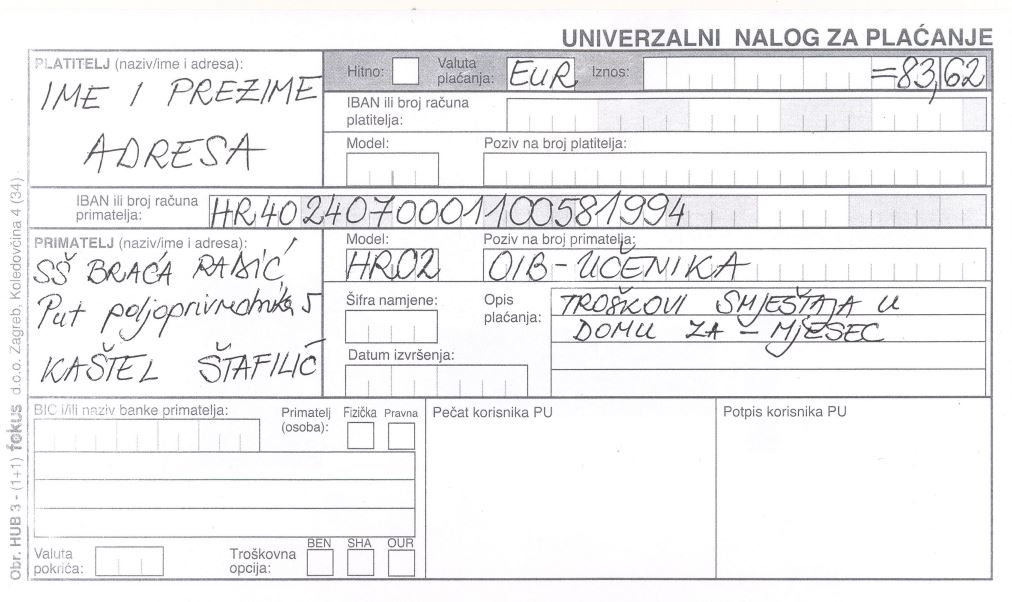 UNIVERZALNI NALOG ZA PLAĆANJE
PLATITELJ (naziv/ime i adresa):
IME I PREZIME
ADRESA
Hitno:
Valuta plaćanja: EUR
Iznos: =83,62
IBAN ili broj računa platitelja:
Model:
Poziv na broj platitelja:
IBAN ili broj računa primatelja: HR4024070001100581994
PRIMATELJ (naziv/ime i adresa):
SŠ BRAĆA RADIĆ
Put poljoprivrednika 5
KAŠTEL ŠTAFILIĆ
Model:
HR02
Poziv na broj primatelja:
OIB-UČENIKA
Šifra namjene:
Opis plaćanja:
TROŠKOVI SMJEŠTAJA U
DOMU ZA - MJESEC
Datum izvršenja:
BIC i/ili naziv banke primatelja:
Primatelj (osoba):
Fizička
Pravna
Pečat korisnika PU
Potpis korisnika PU
Valuta pokrića:
Troškovna opcija:
BEN
SHA
OUR
Obr. HUB 3 - (1+1) fokus d.o.o. Zagreb, Koledovčina 4 (34)